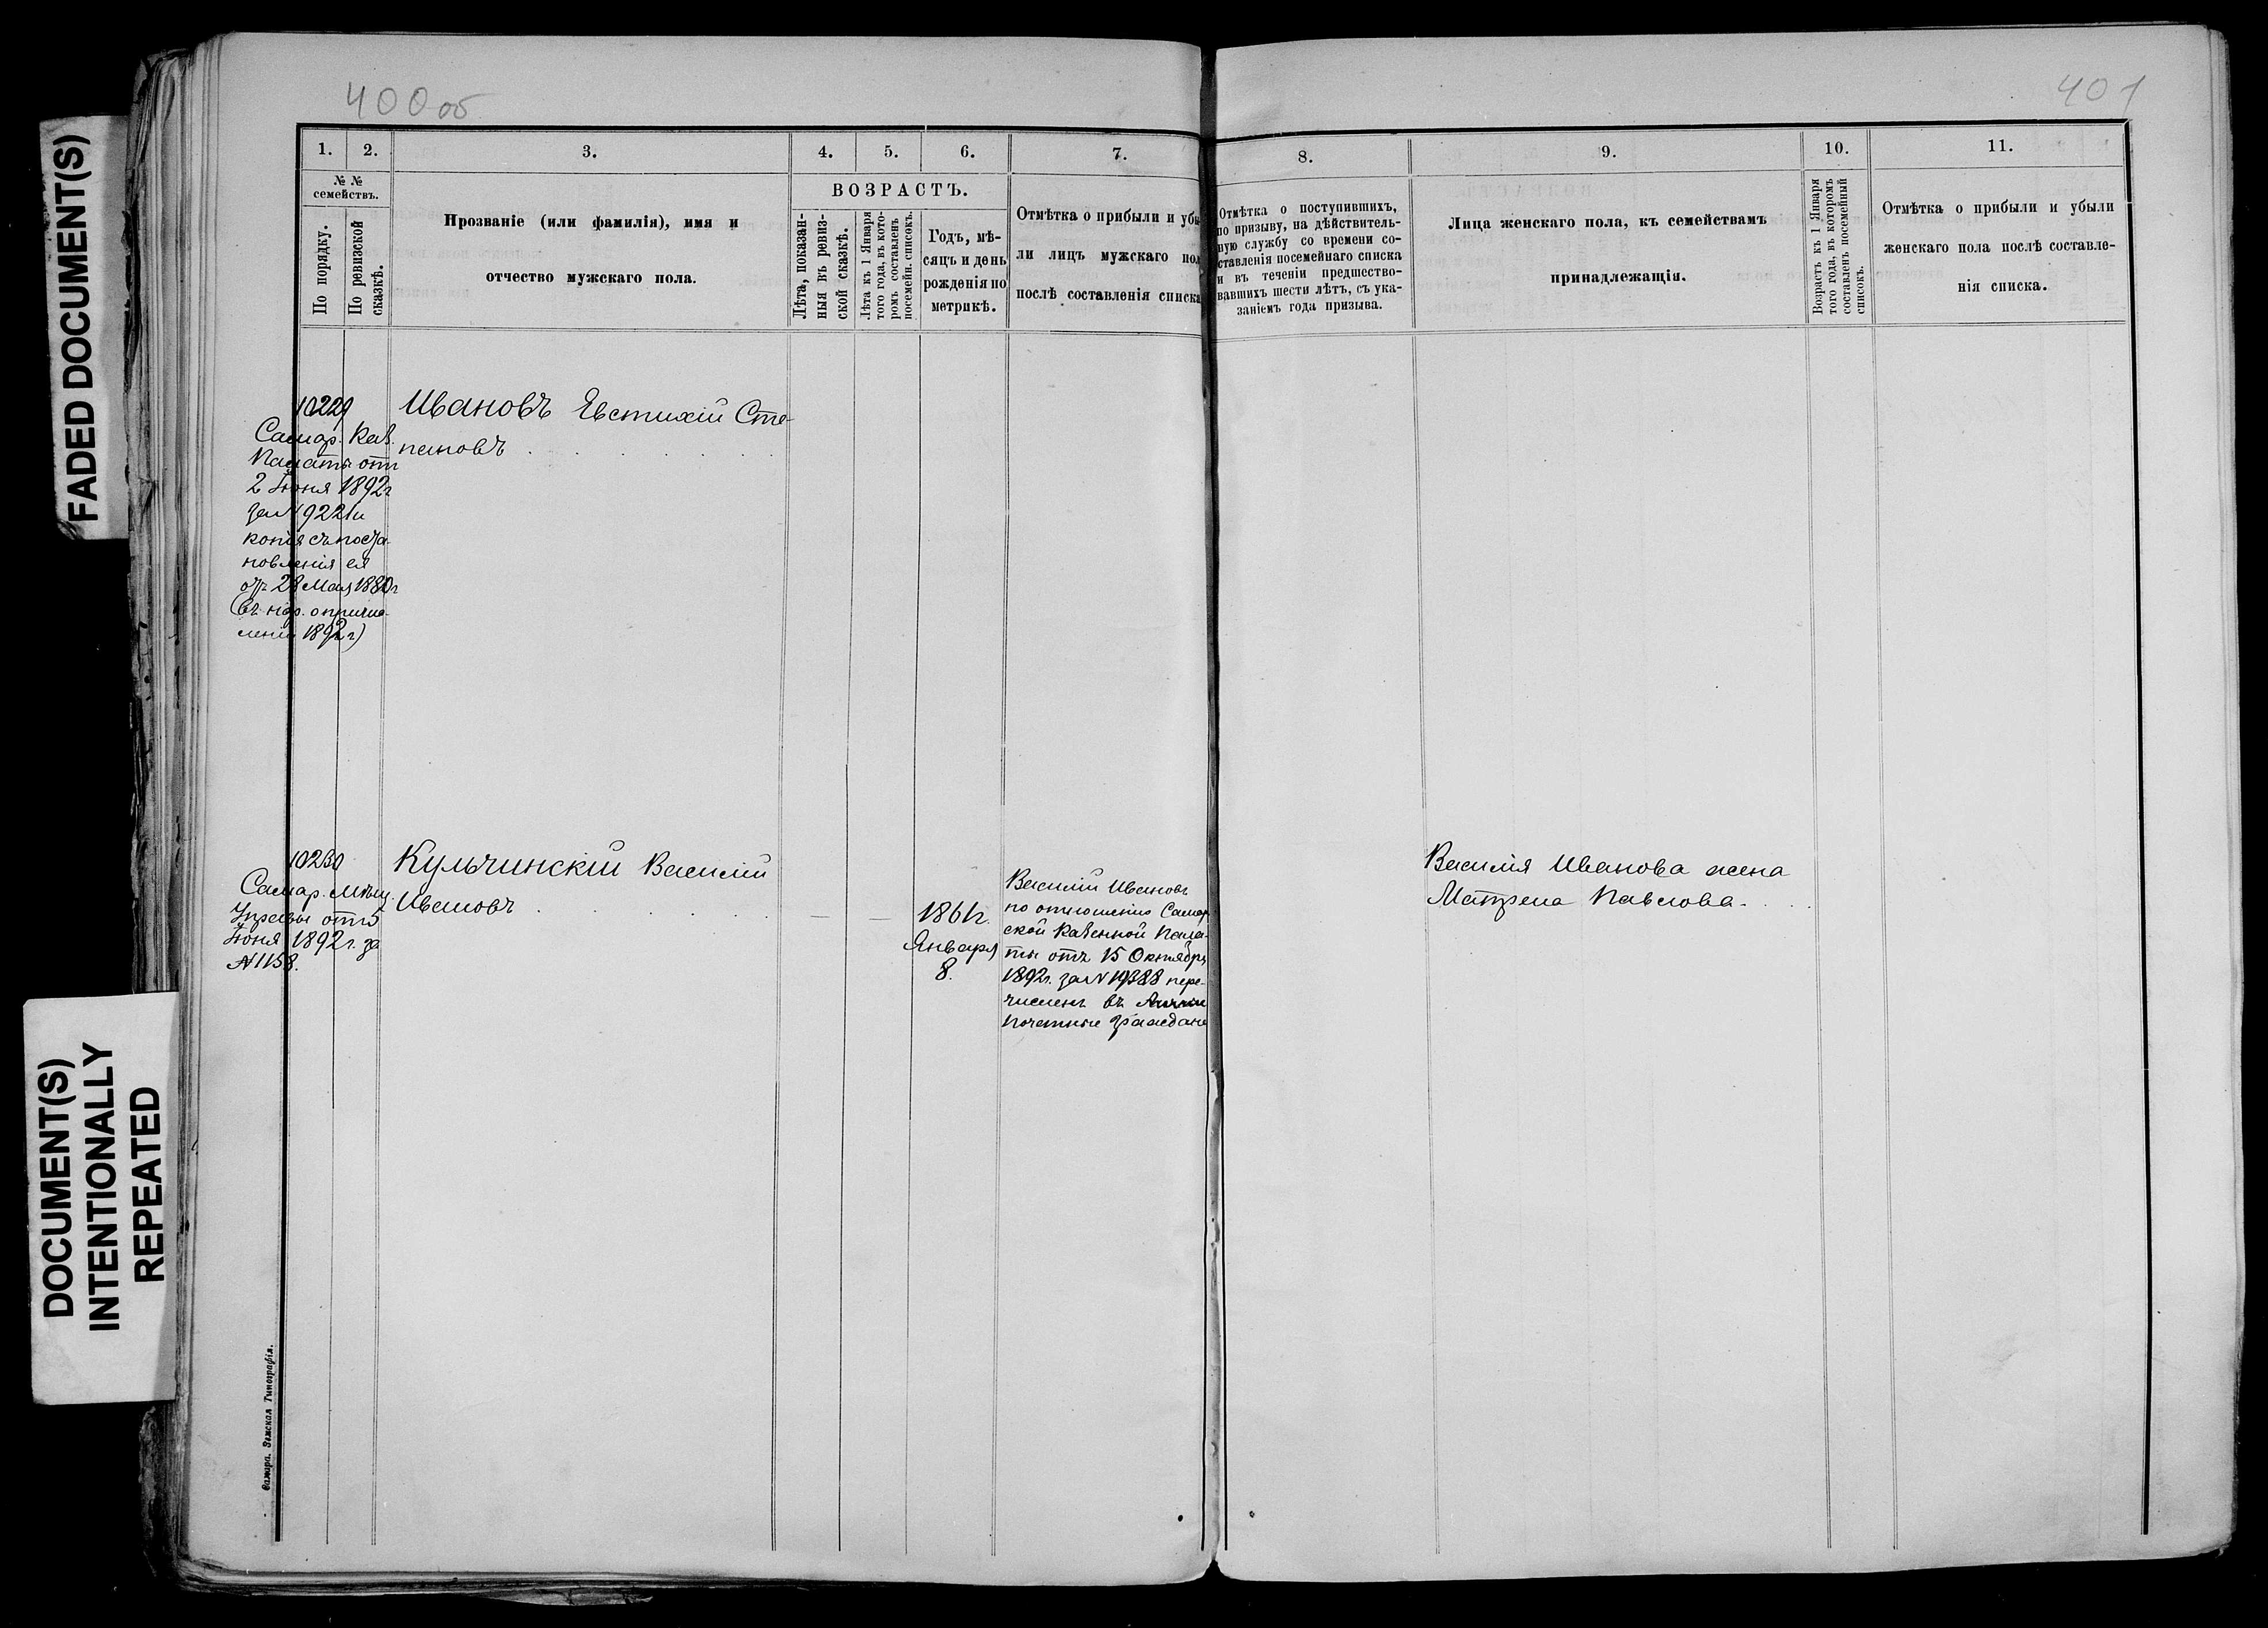 400об
401
FADED DOCUMENT(S)
DOCUMENT(S)
INTENTIONALLY
REPEATED
1.
2.
3.
4.
5.
6.
7.
8.
9.
10.
11.
№ №
семействъ.
По порядку.
По ревизской
сказкѣ.
Прозваніе (или фамилія), имя и
отчество мужскаго пола.
ВОЗРАСТЪ.
Лѣта, показан-
ныя въ ревиз-
ской сказкѣ.
Лѣта къ 1 Января
того года, въ кото-
ромъ составленъ
посемейн. списокъ.
Годъ, мѣ-
сяцъ и день
рожденія по
метрикѣ.
Отмѣтка о прибыли и убы
ли лицъ мужскаго пол
послѣ составленія списка
Отмѣтка о поступившихъ,
по призыву, на дѣйствитель-
ную службу со времени со-
ставленія посемейнаго списка
и въ теченіи предшество-
вавшихъ шести лѣтъ, съ ука-
заніемъ года призыва.
Лица женскаго пола, къ семействамъ
принадлежащія.
Возрастъ къ 1 Января
того года, въ которомъ
составленъ посемейный
списокъ.
Отмѣтка о прибыли и убыли
женскаго пола послѣ составле-
нія списка.
10229
Самар. Каз.
Палаты отъ
2 Іюня 1892г
за № 9221 и
копія съ поста
новленія ея
отъ 28 Мая 1880г
(въ нар. о причис
леніи 1892 г)
Ивановъ Евстихій Сте-
пановъ
10230
Самар. Мѣщ.
Управы отъ 5
Іюня 1892 г. за
№ 1158.
Кульчинскій Василій
Ивановъ
1861г.
Января
8.
Василій Ивановъ
по отношенію Самар
ской Казенной Пала-
ты отъ 15 Октября
1892г. за № 19388 пере-
численъ въ Личные
почетные граждане
Василія Иванова жена
Матрена Павлова.
Самара. Земская Типографія.